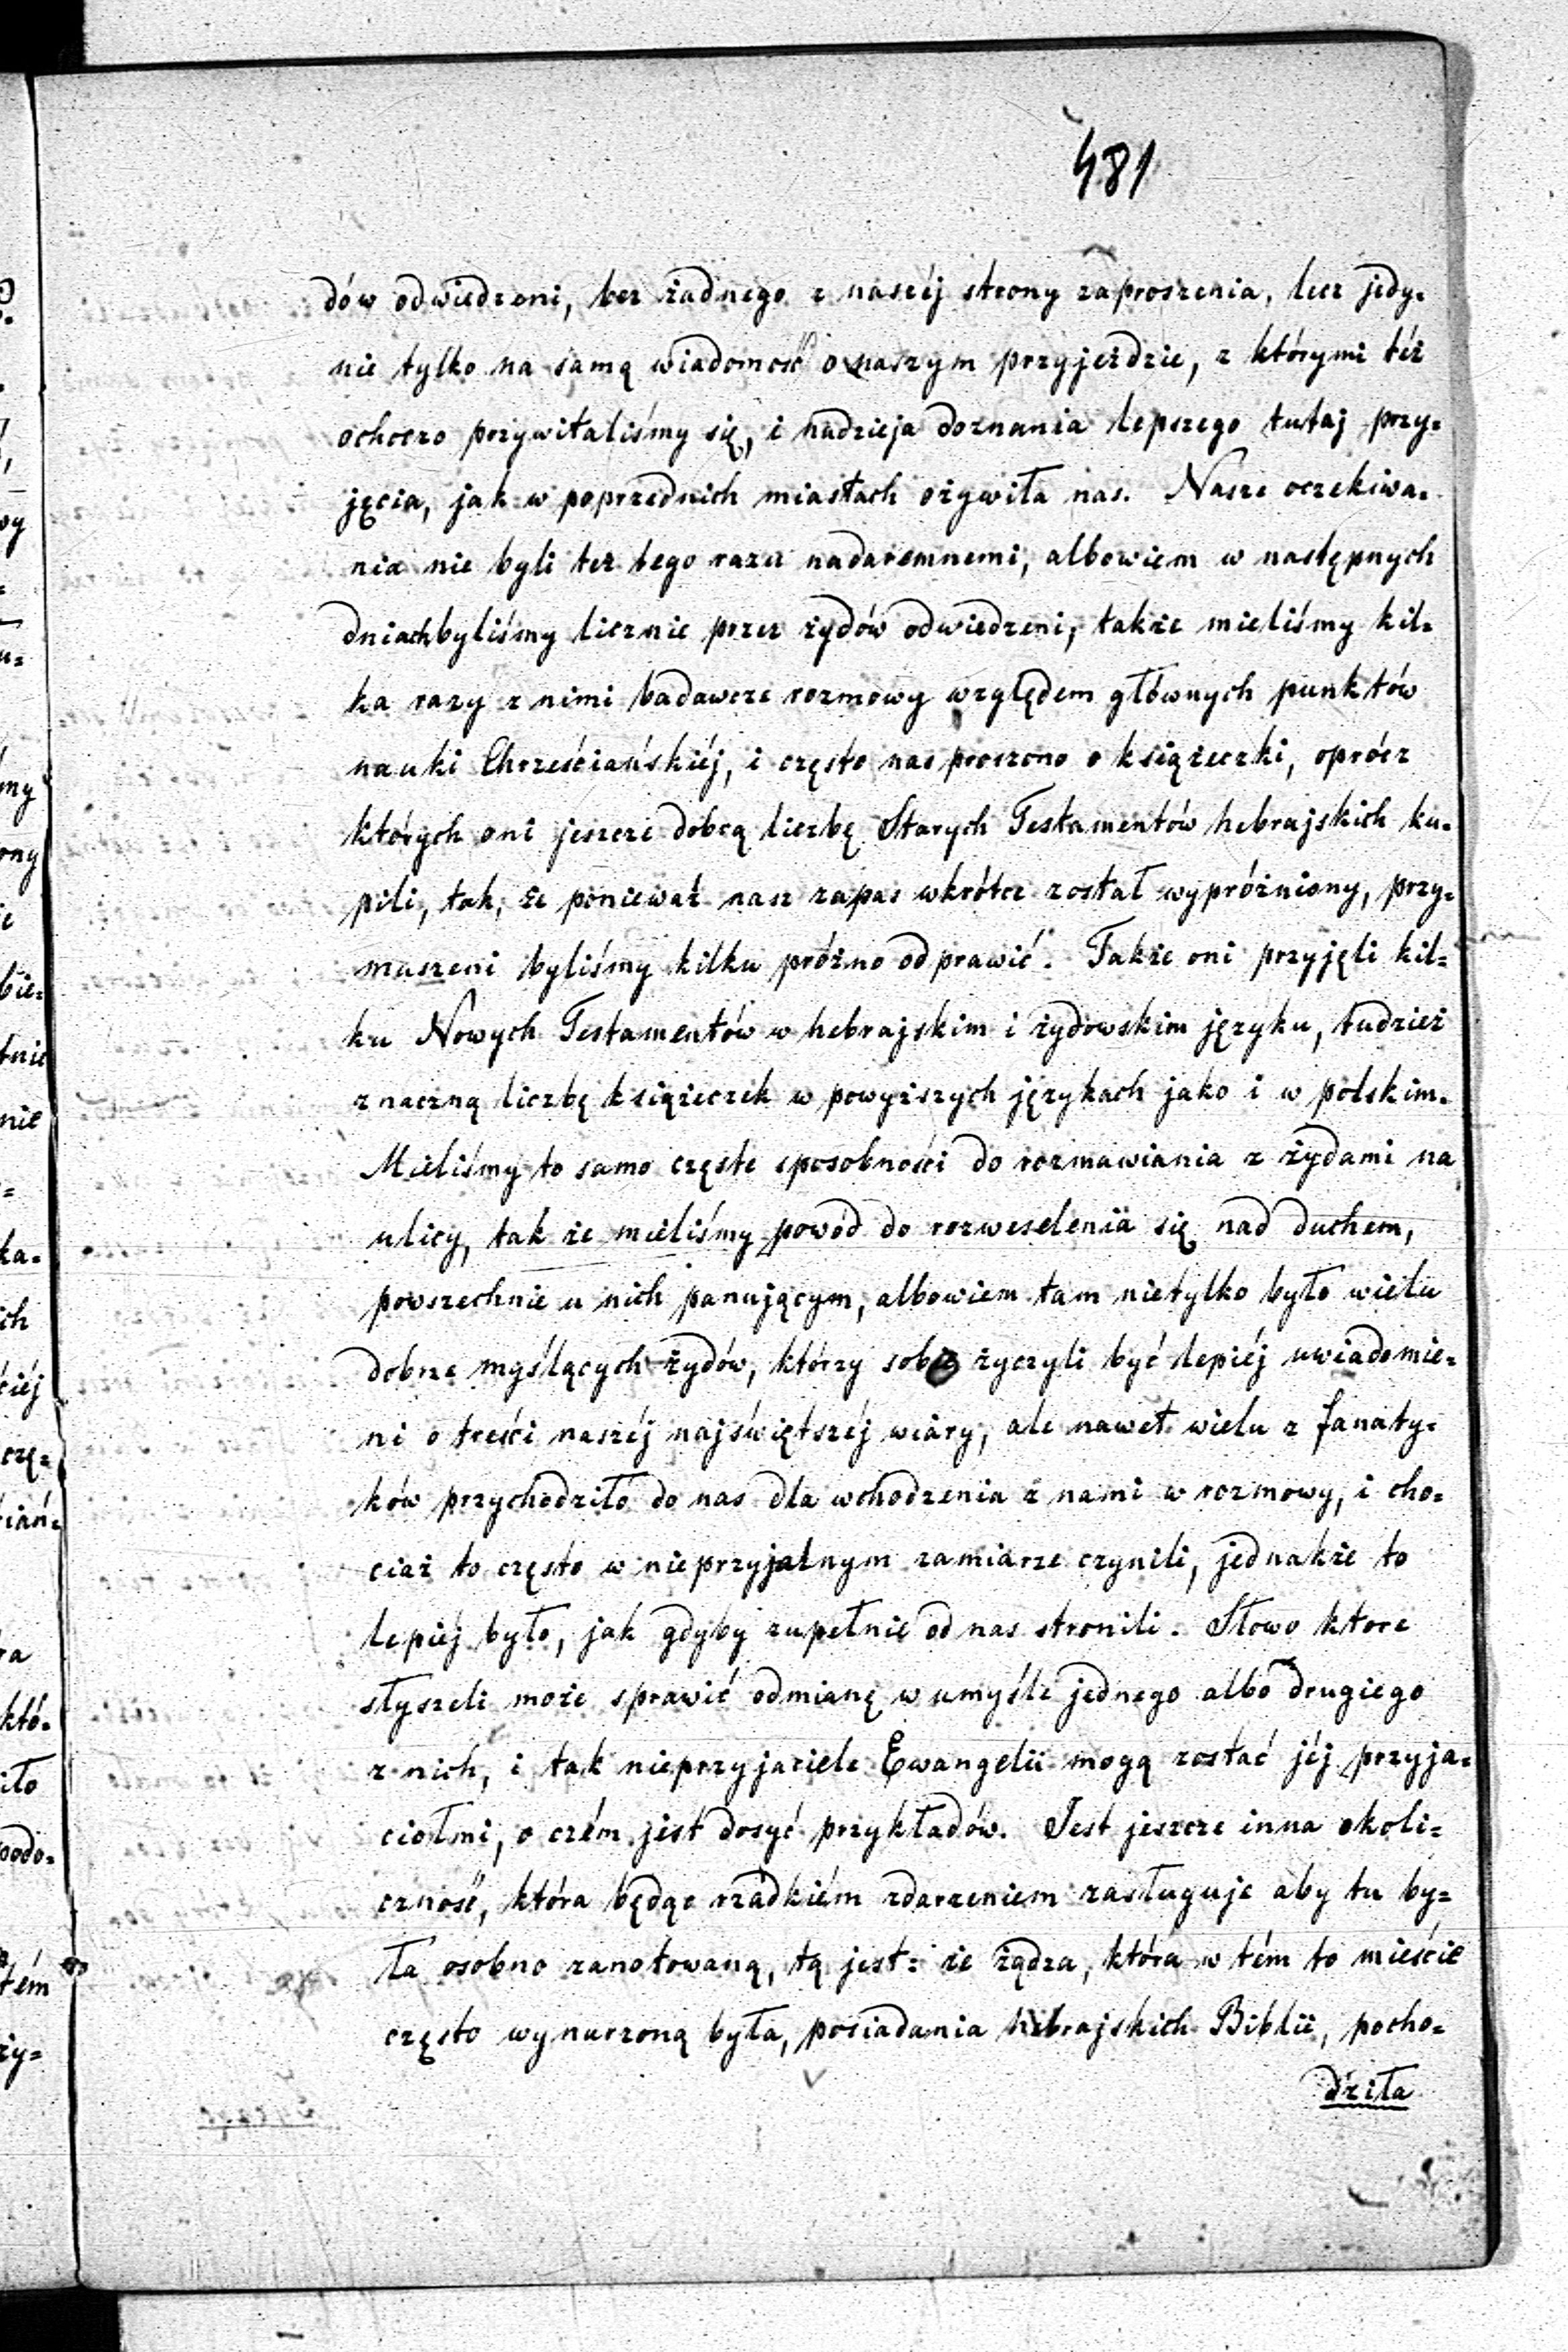 481
dów odwiedzeni, bez żadnego z naszéj strony zaproszenia, lecz jedy=
nie tylko na samą wiadomość o naszym przyjeździe, z którymi téż
ochoczo przywitaliśmy się, i nadzieja doznania lepszego tutaj przy=
jęcia, jak w poprzednich miastach ożywiła nas. Nasze oczekiwa=
nia nie byli też tego razu nadaremnemi, albowiem w następnych
dniach byliśmy licznie przez żydów odwiedzeni, także mieliśmy kil=
ka razy z nimi badawcze rozmowy względem głównych punktów
nauki Chrześciańskiéj, i często nas proszono o książeczki, oprócz
których oni jeszcze dobrą liczbę Starych Testamentów hebrajskich ku=
pili, tak, że ponieważ nasz zapas wkrótce został wypróżniony, przy=
muszeni byliśmy kilku próżno odprawić. Także oni przyjęli kil=
ku Nowych Testamentów w hebrajskim i żydowskim języku, tudzież
znaczną liczbę książeczek w powyższych językach jako i w polskim.
Mieliśmy to samo częste sposobności do rozmawiania z żydami na
ulicy, tak że mieliśmy powód do rozweselenia się nad duchem,
powszechnie u nich panującym, albowiem tam nietylko było wielu
dobrze myślących żydów, którzy sobie życzyli być lepiéj uwiadomie=
ni o treści naszéj najświętszéj wiary, ale nawet wielu z fanaty=
ków przychodziło do nas dla wchodzenia z nami w rozmowy, i cho=
ciaż to często w nieprzyjalnym zamiarze czynili, jednakże to
lepiéj było, jak gdyby zupełnie od nas stronili. Słowo ktore
słyszeli może sprawić odmianę w umyśle jednego albo drugiego
z nich, i tak nieprzyjaciele Ewangelii mogą zostać jéj przyja=
ciołmi, o czém jest dosyć przykładów. Jest jeszcze inna okoli=
czność, która będąc rzadkiém zdarzeniem zasługuje aby tu by=
ła osobno zanotowaną, tą jest: że żądza, która w tém to mieście
często wynurzoną była, posiadania hebrajskich Biblii, pocho=
dziła